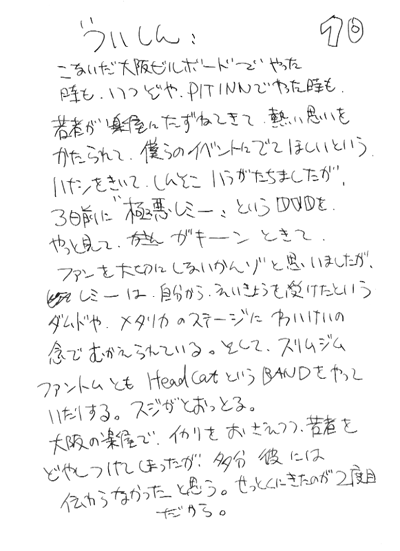 ういしん: 10
こないだ大阪ビルボードでやった
時も、いつぞや、PIT INNでやった時も、
若者が楽屋にたずねてきて、熱い思いを
かたられて、僕らのイベントにでてほしいという
ハナシをきいて、しんそこハラがたちましたが、
3日前に"極悪レミー"というDVDを
やっと見て、ガキーンときて、
ファンを大切にしないかんゾと思いましたが、
レミーは、自分から、えいきょうを受けたという
ダムドや、メタリカのステージに、わいけいの
念でむかえられている。そして、スリムジム
ファントムともHeadCatというBANDをやって
いたりする。スジがとおっとる。
大阪の楽屋で、イカリをおさえつつ、若者を
どやしつけてしまったが、多分彼には
伝わらなかったと思う。せっとくにきたのが2度目
だから。